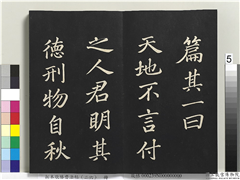 篇其一曰
天地不言付
之人君明其
德刑物自秋
5